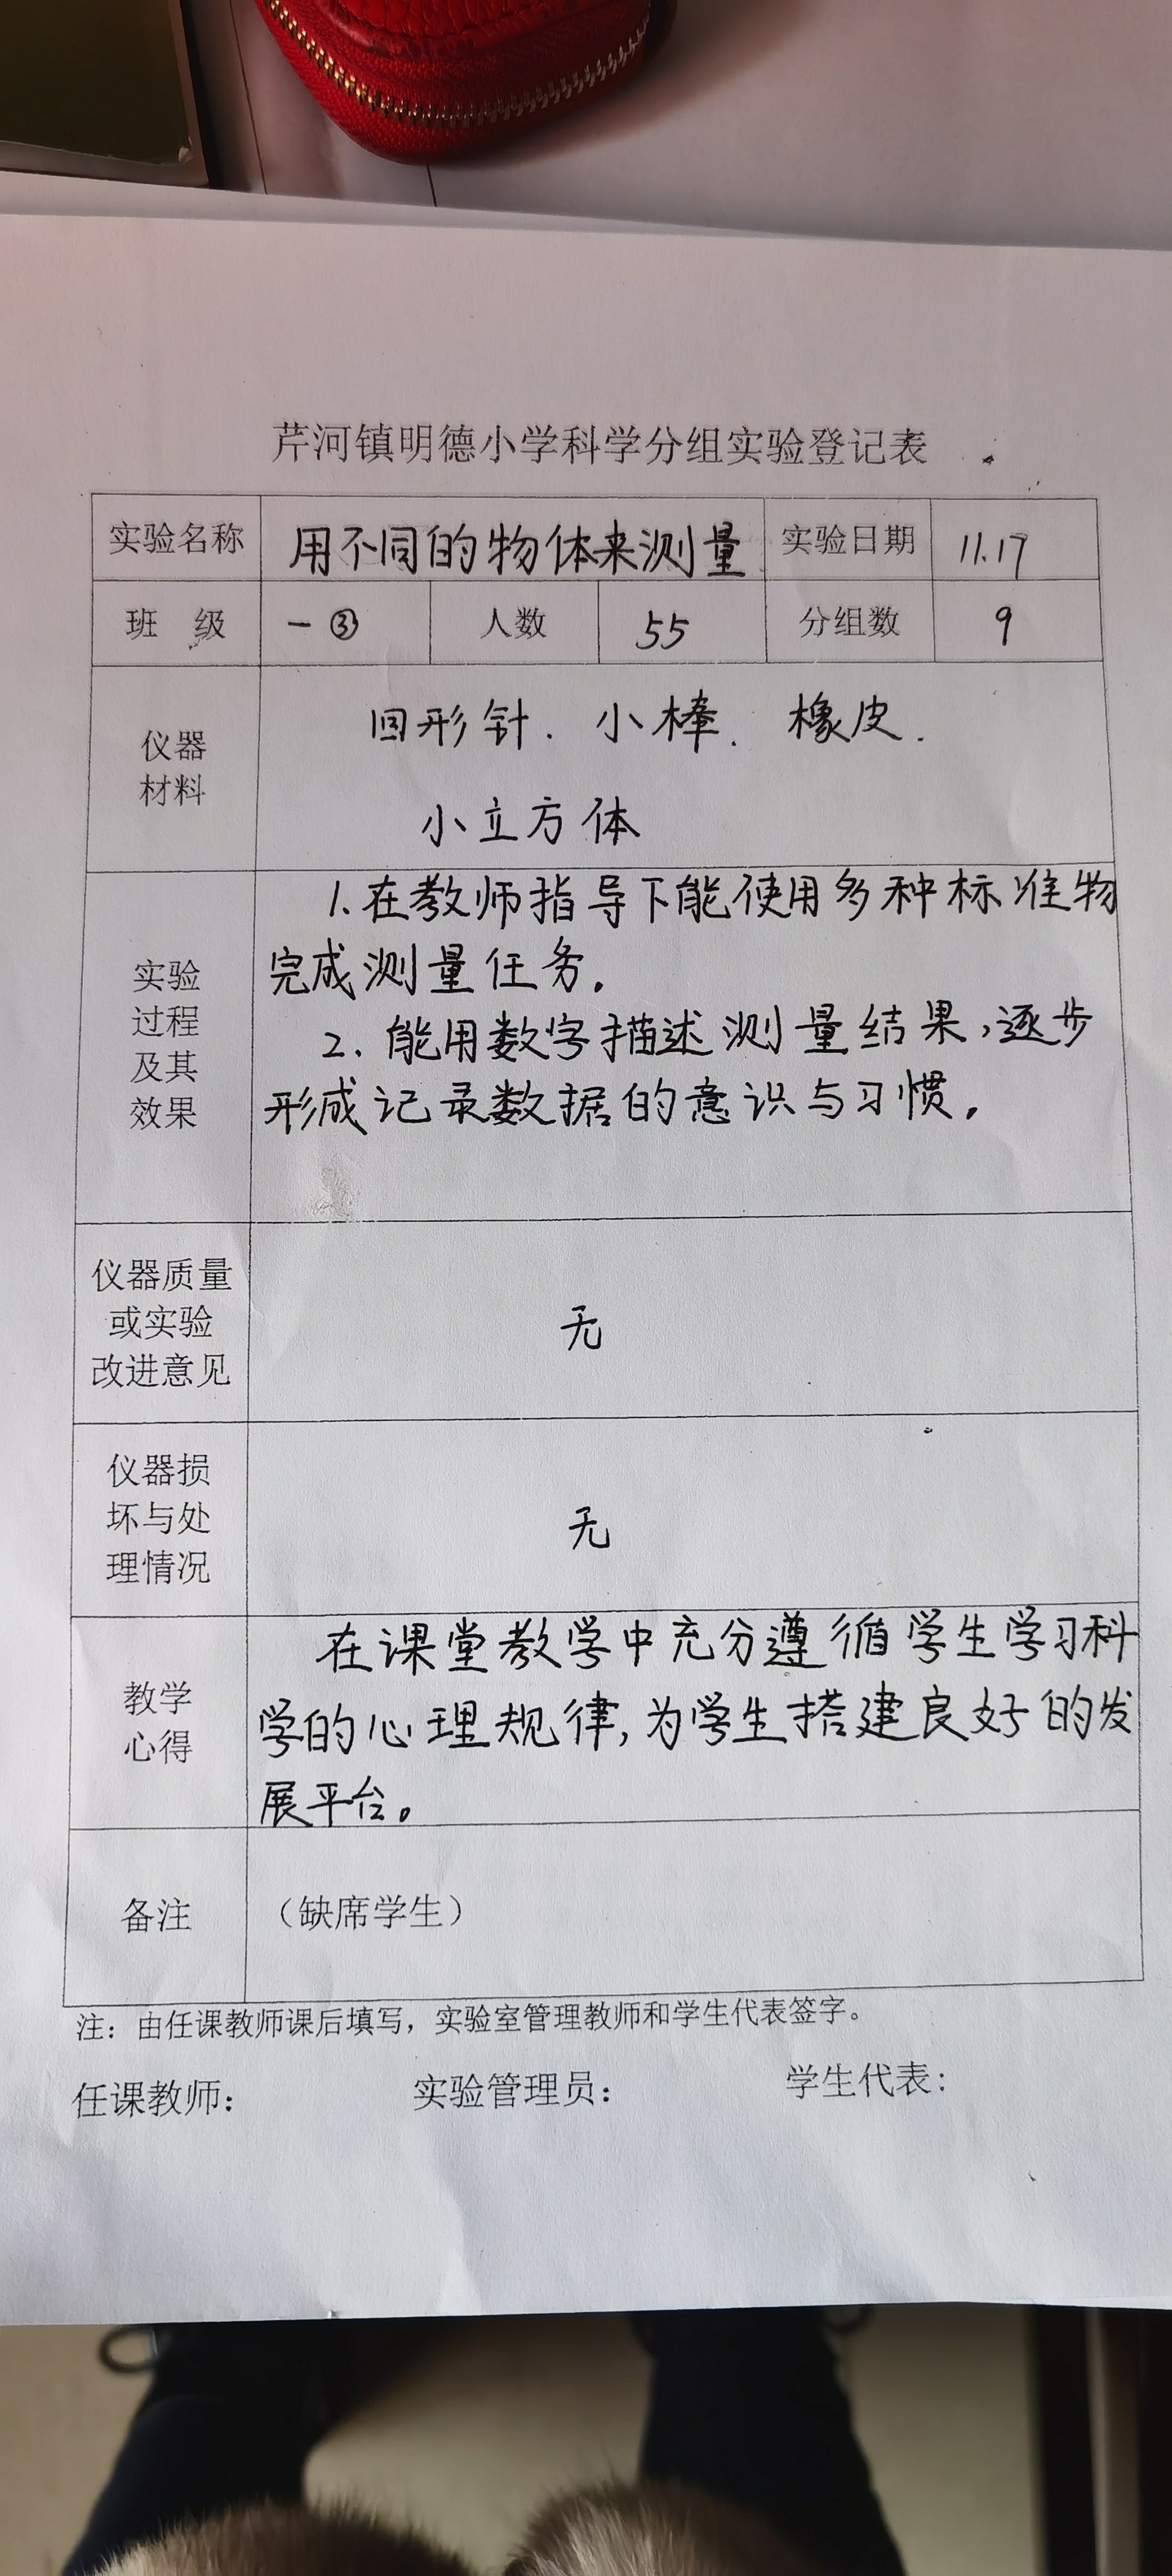 芹河镇明德小学科学分组实验登记表
实验名称 用不同的物体来测量 实验日期 11.17
班 级 一③ 人数 55 分组数 9
仪器
材料
回形针. 小棒. 橡皮.
小立方体
实验
过程
及其
效果
1.在教师指导下能使用多种标准物
完成测量任务.
2. 能用数字描述测量结果,逐步
形成记录数据的意识与习惯.
仪器质量
或实验
改进意见
无
仪器损
坏与处
理情况
无
教学
心得
在课堂教学中充分遵循学生学习科
学的心理规律,为学生搭建良好的发
展平台。
备注 （缺席学生）
注：由任课教师课后填写，实验室管理教师和学生代表签字。
任课教师： 实验管理员： 学生代表：